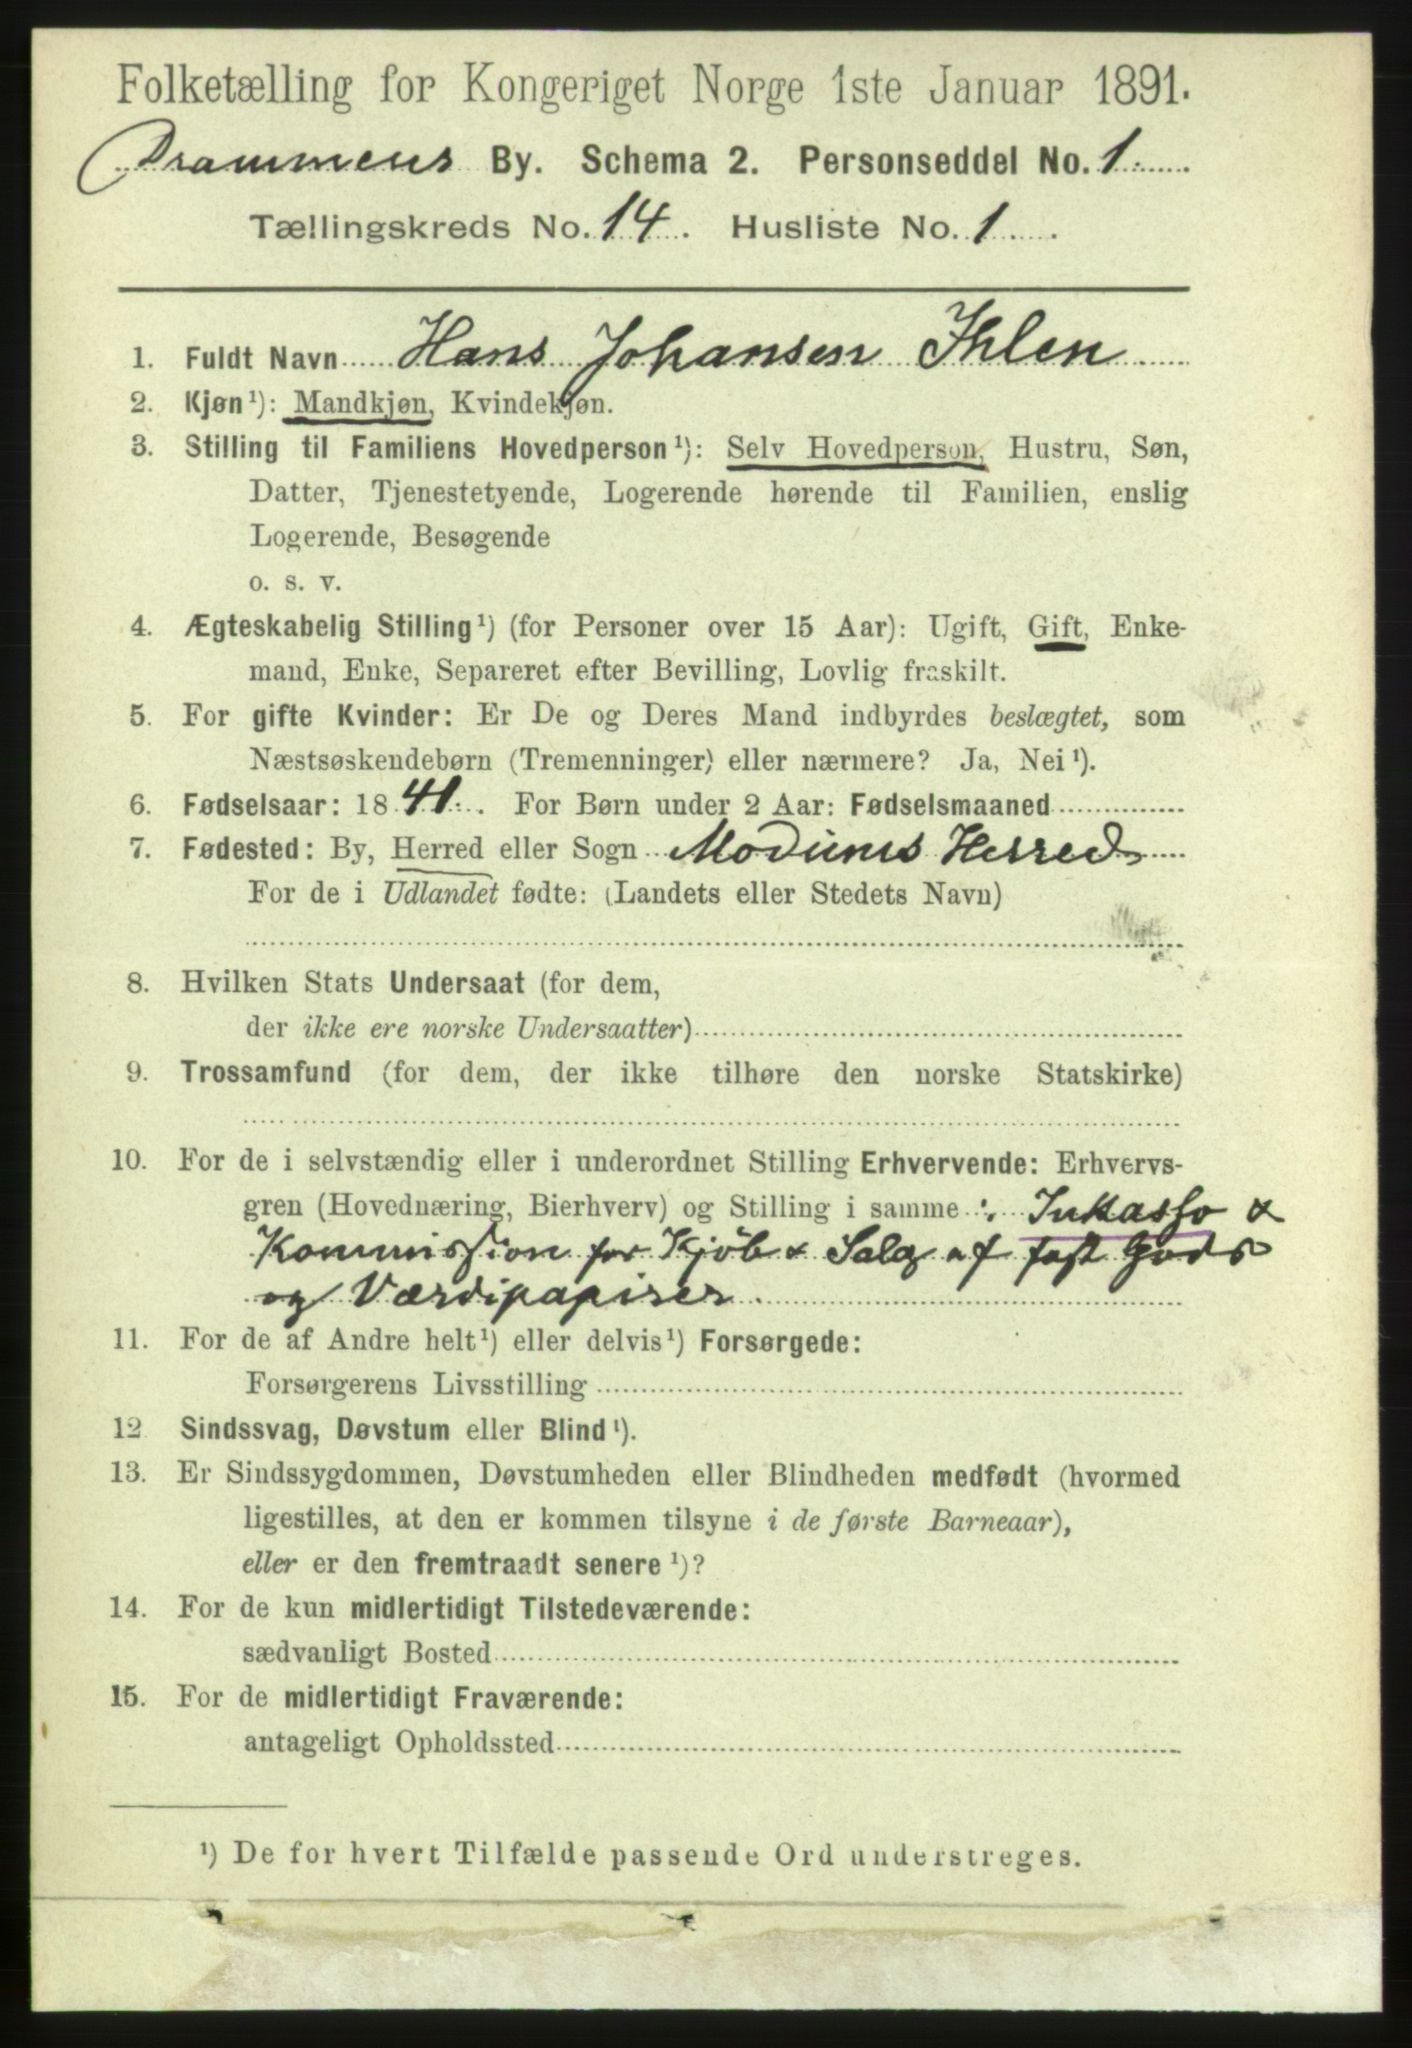 Folketælling for Kongeriget Norge 1ste Januar 1891.
Drammens By. Schema 2. Personseddel No. 1
Tællingskreds No. 14. Husliste No. 1
1. Fuldt Navn Hans Johansen Ihlen
2. Kjøn¹): Mandkjøn, Kvindekjøn.
3. Stilling til Familiens Hovedperson¹): Selv Hovedperson, Hustru, Søn,
Datter, Tjenestetyende, Logerende hørende til Familien, enslig
Logerende, Besøgende
o. s. v.
4. Ægteskabelig Stilling¹) (for Personer over 15 Aar): Ugift, Gift, Enke-
mand, Enke, Separeret efter Bevilling, Lovlig fraskilt.
5. For gifte Kvinder: Er De og Deres Mand indbyrdes beslægtet, som
Næstsøskendebørn (Tremenninger) eller nærmere? Ja, Nei¹).
6. Fødselsaar: 1841. For Børn under 2 Aar: Fødselsmaaned
7. Fødested: By, Herred eller Sogn Modums Herred
For de i Udlandet fødte: (Landets eller Stedets Navn)
8. Hvilken Stats Undersaat (for dem,
der ikke ere norske Undersaatter)
9. Trossamfund (for dem, der ikke tilhøre den norske Statskirke)
10. For de i selvstændig eller i underordnet Stilling Erhvervende: Erhvervs-
gren (Hovednæring, Bierhverv) og Stilling i samme: Inkasso &
Kommission for Kjøb & Salg af fast Gods
og Værdipapirer.
11. For de af Andre helt¹) eller delvis¹) Forsørgede:
Forsørgerens Livsstilling
12 Sindssvag, Døvstum eller Blind¹).
13. Er Sindssygdommen, Døvstumheden eller Blindheden medfødt (hvormed
ligestilles, at den er kommen tilsyne i de første Barneaar),
eller er den fremtraadt senere¹)?
14. For de kun midlertidigt Tilstedeværende:
sædvanligt Bosted
15. For de midlertidigt Fraværende:
antageligt Opholdssted
¹) De for hvert Tilfælde passende Ord understreges.